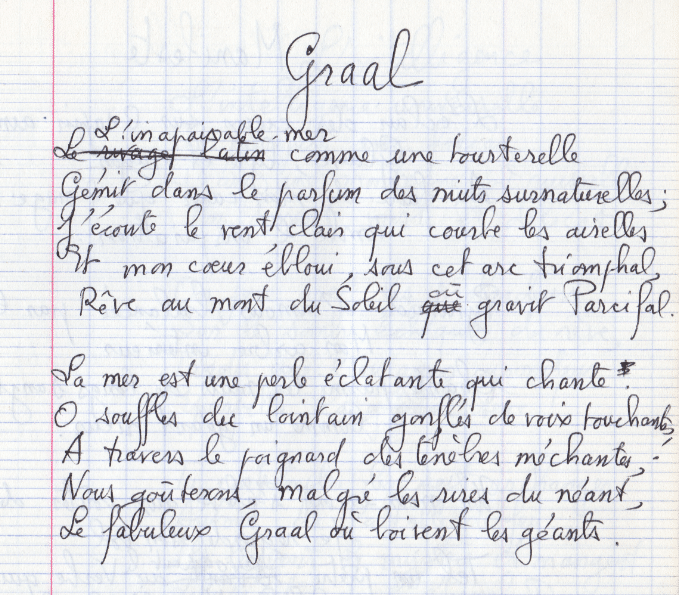 Graal
L'inapaisable mer
Le rivage latin comme une tourterelle
Gémit dans le parfum des nuits surnaturelles ;
J'écoute le vent clair qui courbe les airelles
Et mon cœur ébloui, sous cet arc triomphal,
où
Rêve au mont du Soleil que gravit Parcifal.
La mer est une perle éclatante qui chante !
O souffles du lointain gonflés de voix touchantes,
A travers le poignard des ténèbres méchantes,
Nous goûterons, malgré les rires du néant,
Le fabuleux Graal où boivent les géants.